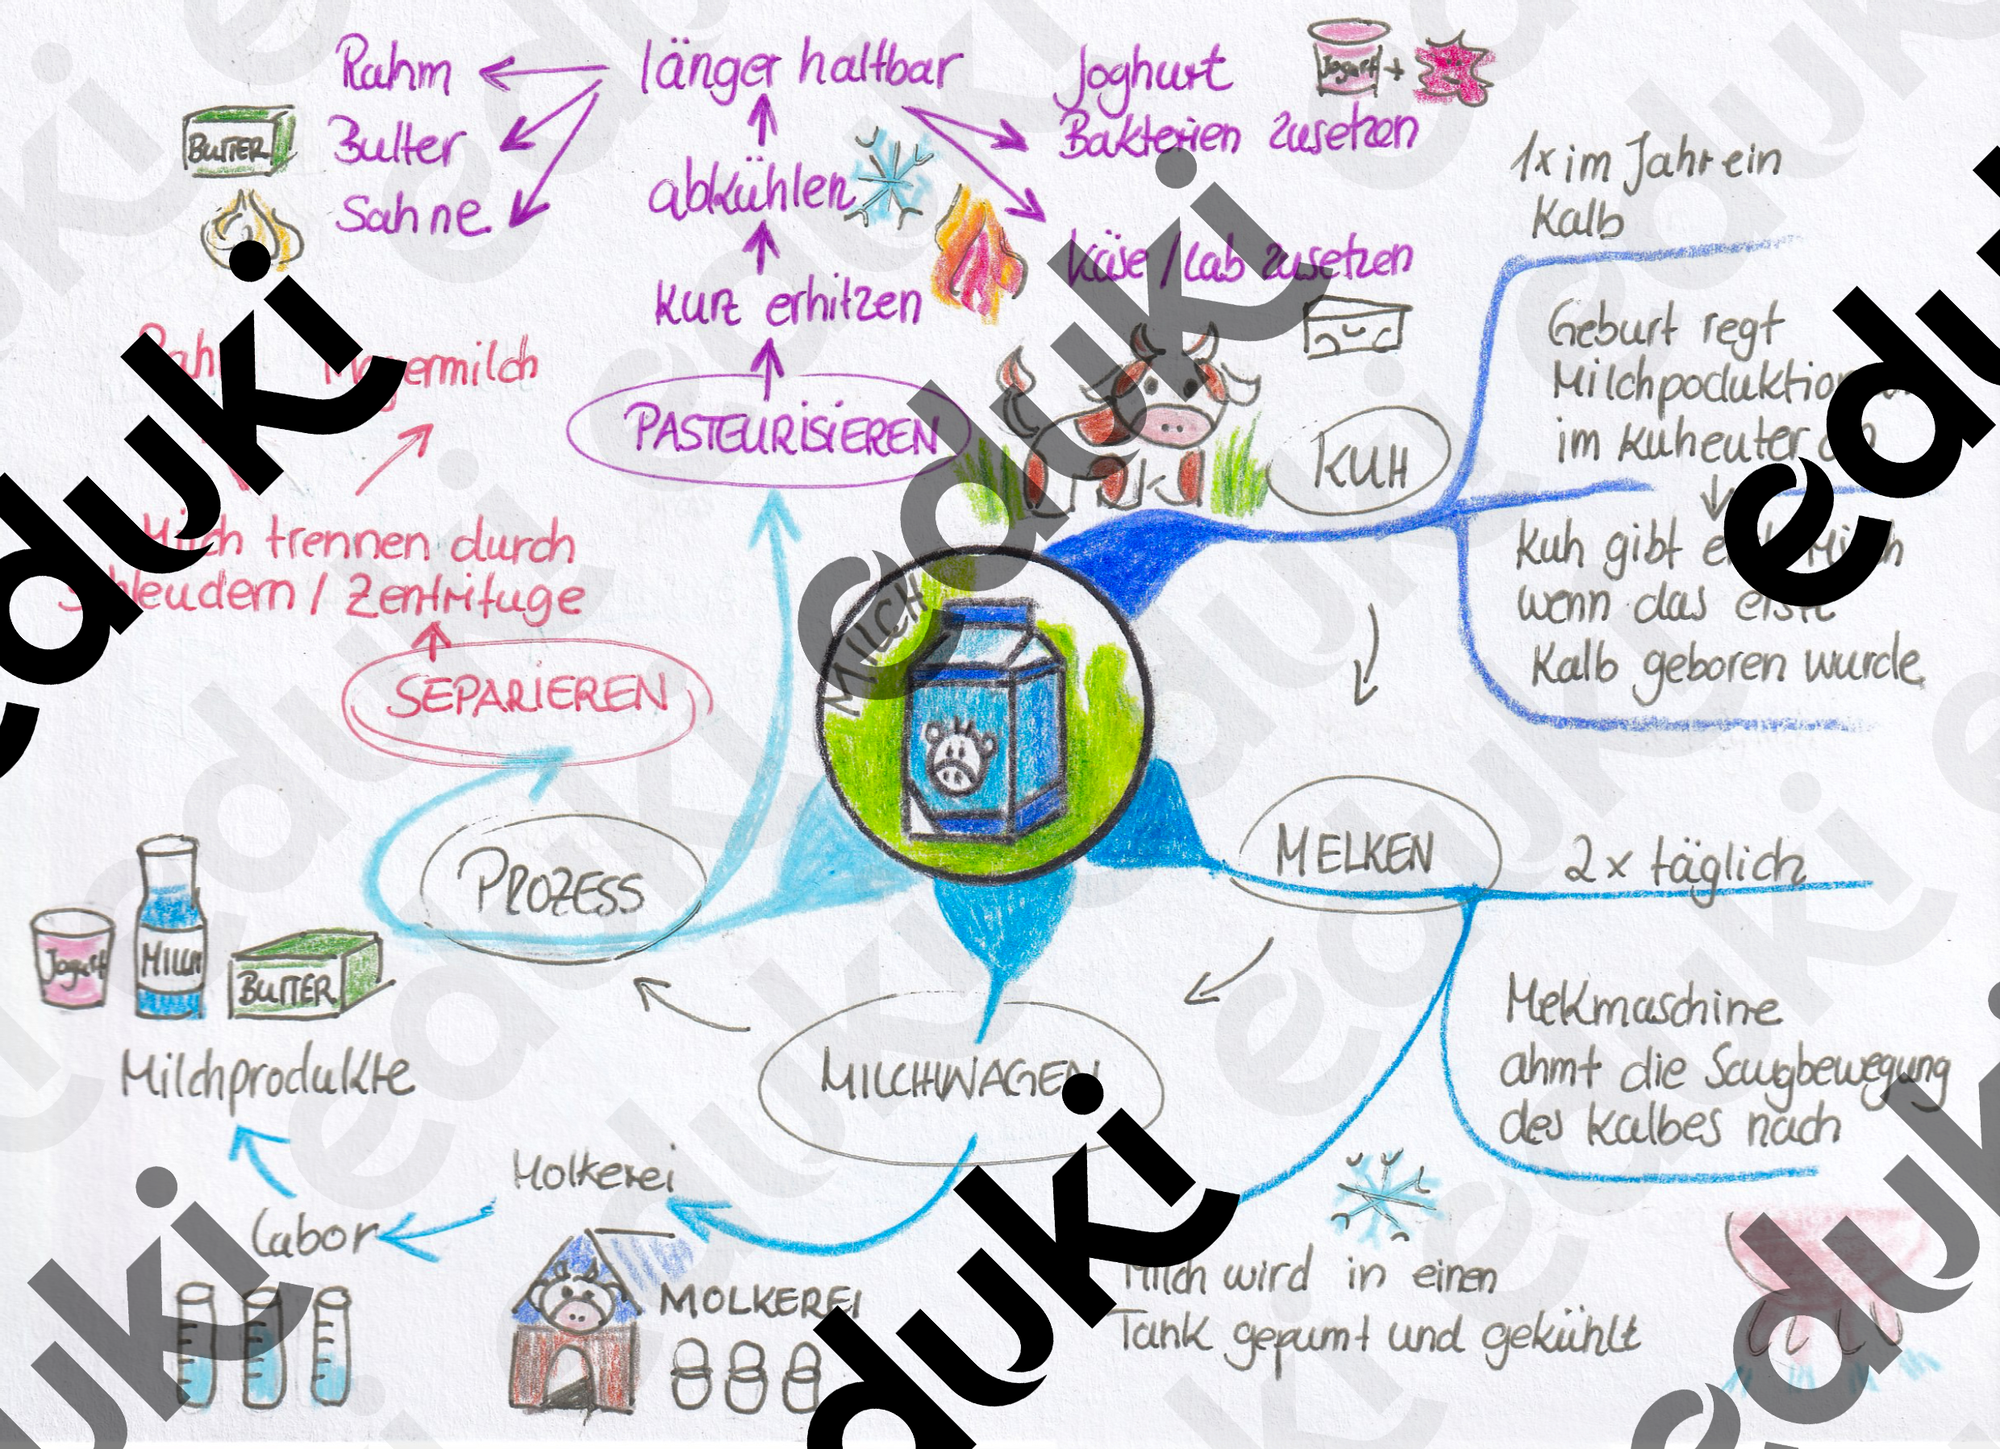 Rahm
länger haltbar
Joghurt
Jogurt +
BUTTER
Butter
Bakterien zusetzen
abkühlen
Sahne
1x im Jahr ein
Kalb
Käse / Lab zusetzen
kurz erhitzen
Geburt regt
im Kuheuter
PASTEURISIEREN
KUH
Milch trennen durch
/ Zentrifuge
Kuh gibt
wenn das erste
Kalb geboren wurde
MILCH
SEPARIEREN
MELKEN
2x täglich
PROZESS
Jogurt
MILCH
BUTTER
Milchprodukte
MILCHWAGEN
Mekmaschine
ahmt die Saugbewegung
des Kalbes nach
Molkerei
Labor
MOLKEREI
Milch wird in einen
Tank gepumt und gekühlt
eduki
eduki
eduki
eduki
eduki